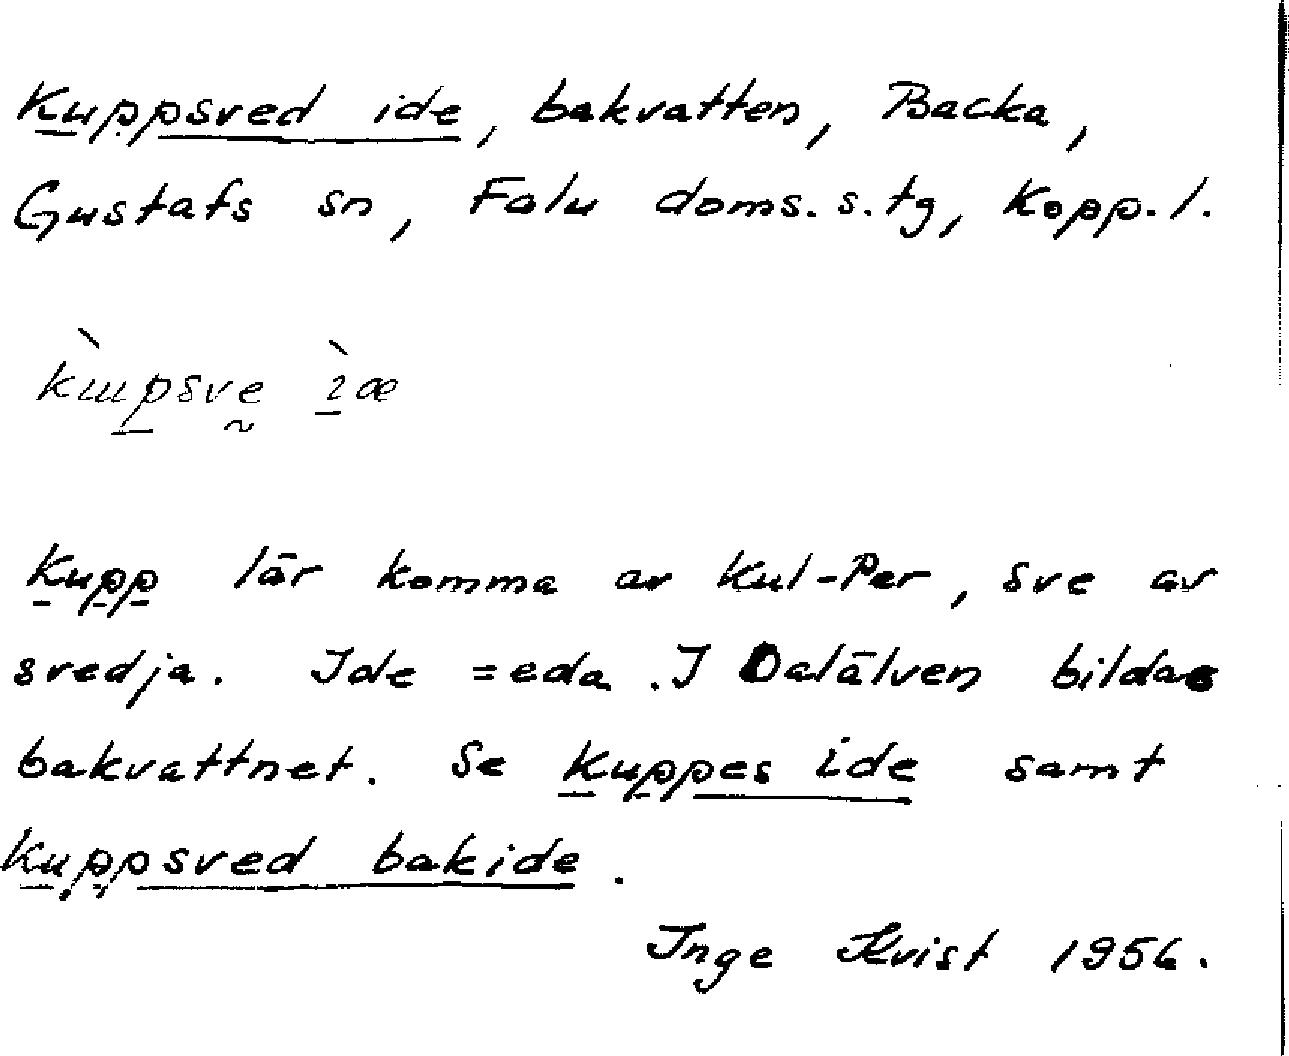 Kuppsved ide, bakvatten, Backa,
Gustafs sn, Falu doms.s.tg, Kopp.l.
Kupp lär komma av Kul-Per, sve av
svedja. Ide = eda. I Dalälven bildas
bakvattnet. Se Kuppes ide samt
Kuppsved bakide.
Inge Kvist 1956.